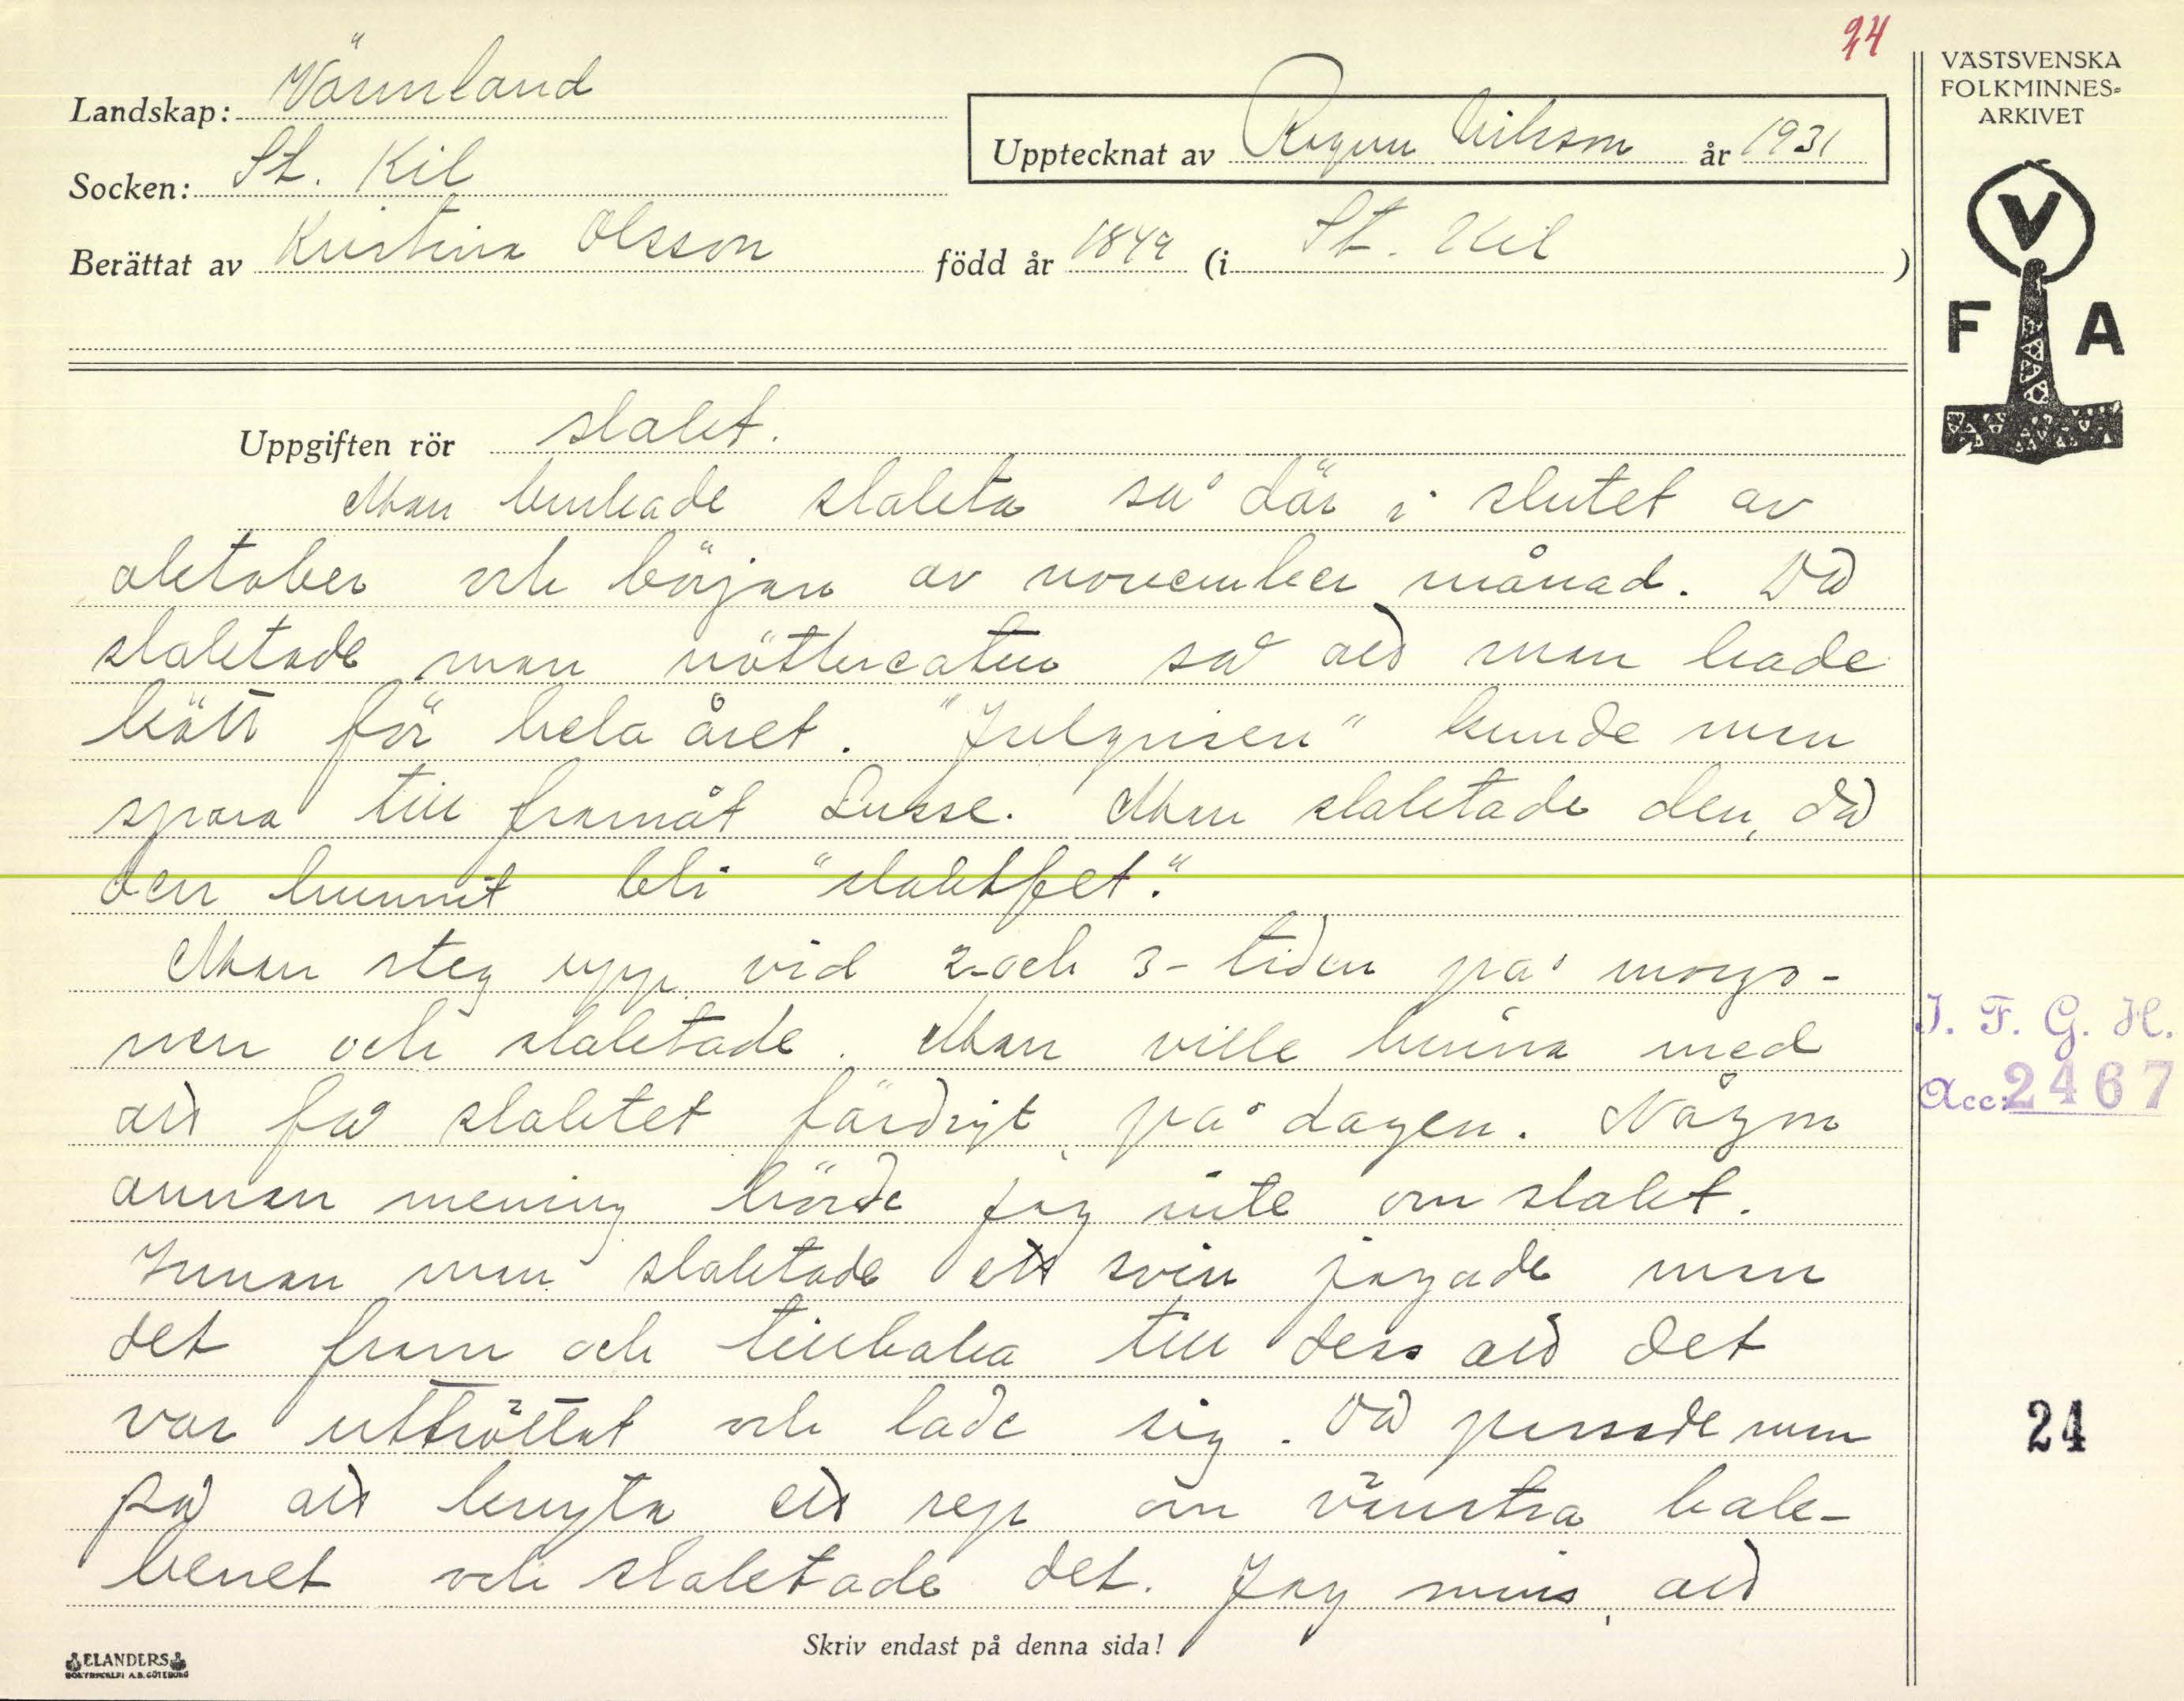 24
VÄSTSVENSKA
FOLKMINNES=
ARKIVET
V
F A
Landskap: Värmland
Upptecknat av Ragnar Nilsson år 1931
Socken: St. Kil
Berättat av Kristina Olsson född år 1849 (i St. Kil )
Uppgiften rör slakt.
Man brukade slakta så där i slutet av
oktober och början av november månad. Då
slaktade man nötkreaten så att man hade
kött för hela året. "Julgrisen" kunde man
spara till framåt Lusse. Man slaktade den, då
den hunnit bli "slaktfet".
Man steg upp vid 2- och 3-tiden på morgo-
nen och slaktade. Man ville hinna med
att få slaktet färdigt på dagen. Någon
annan mening hörde jag inte om slakt.
Innan man slaktade ett svin jagade man
det fram och tillbaka till dess att det
var uttröttat och lade sig. Då passade man
på att knyta ett rep om vänstra bak-
benet och slaktade det. Jag minns, att
I. F. G. H.
Acc: 2467
24
Skriv endast på denna sida!
ELANDERS
BOKTRYCKERI A.B. GÖTEBORG